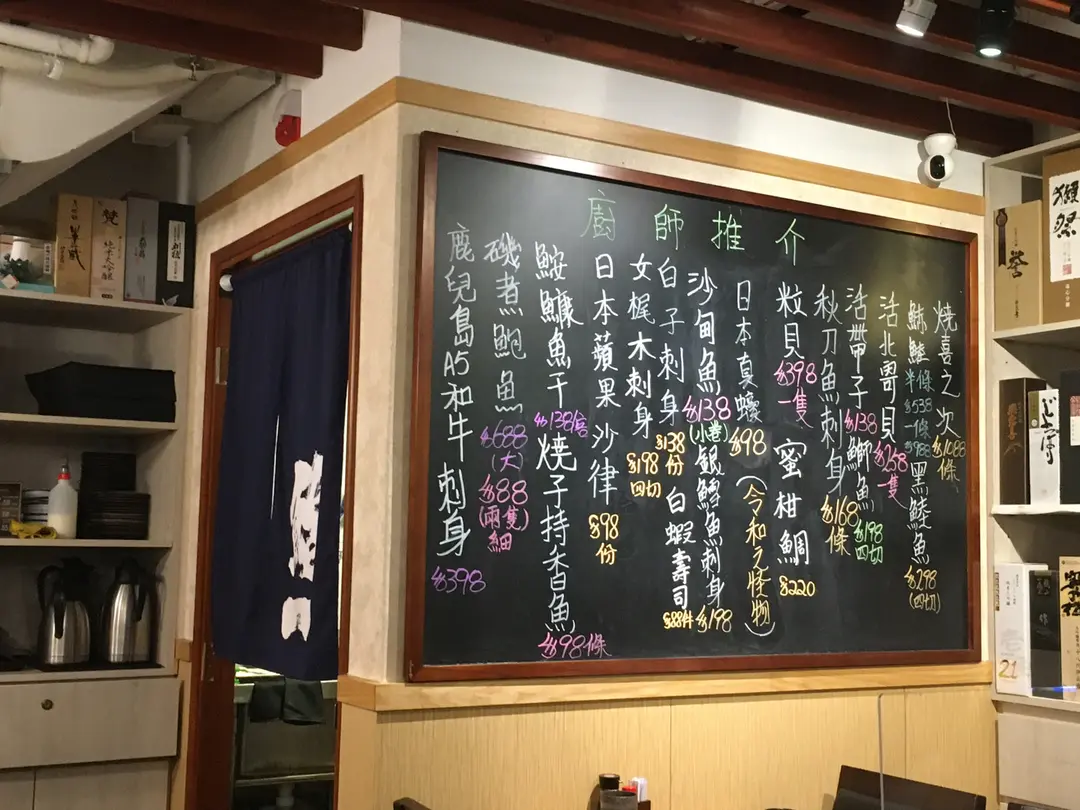 廚師推介
燒喜之次
$1088
條
半條
$538
一條
$988
黑鯥魚
$298
(四切)
活北寄貝
$258
一隻
活帶子
$138
鰤魚
$198
四切
秋刀魚刺身
$168
條
粒貝
$398
一隻
蜜柑鯛
$220
日本真蠔
$98
(令和元怪物)
沙甸魚
$138
(小卷)
銀鱈魚刺身
$198
白子刺身
$138
份
白蝦壽司
$88/件
女梶木刺身
$198
四切
日本蘋果沙律
$98
份
鮟鱇魚干
$138
燒子持香魚
$98條
磯煮鮑魚
$688
(大)
$88
(兩隻)
細
鹿兒島A5和牛刺身
$398
獺祭
誉
作
21
梵
純米大吟醸